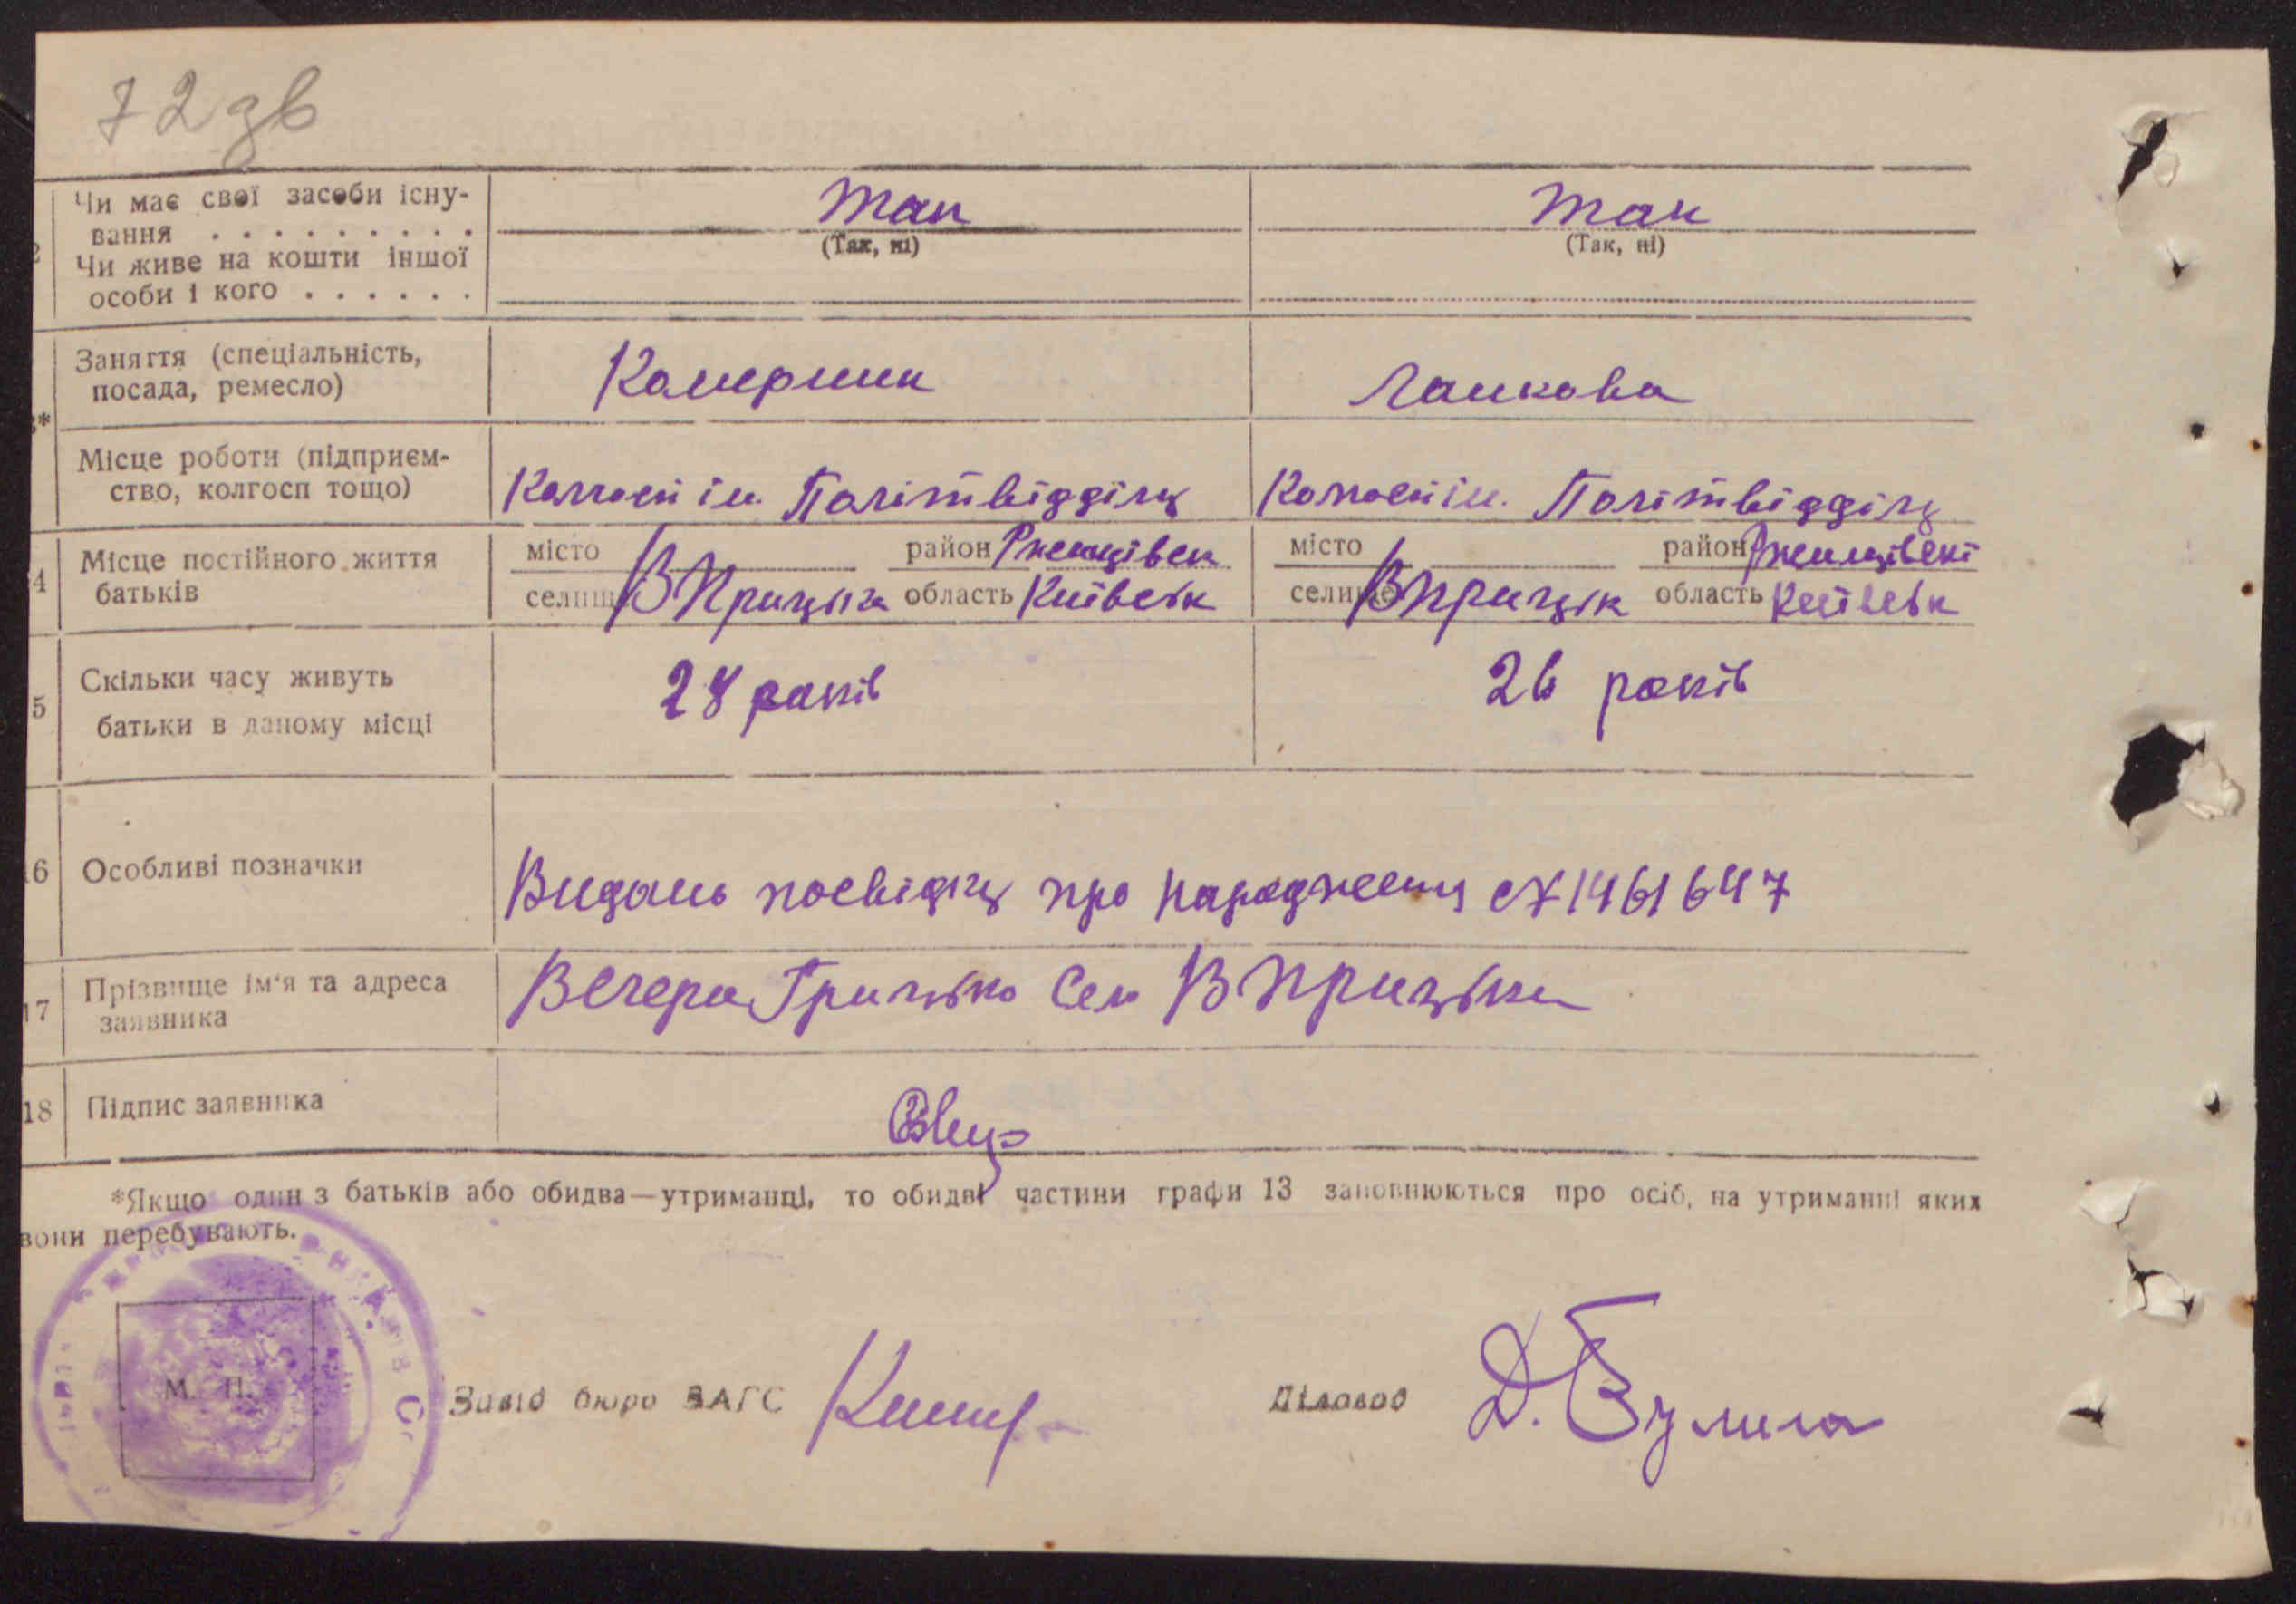 72 зв
Чи має свої засоби існу-
вання . . . . . . . . .
Так
Так
(Так, ні)
(Так, ні)
Чи живе на кошти іншої
особи і кого . . . . . .
Заняття (спеціальність,
посада, ремесло)
Ланкова
*
Місце роботи (підприєм-
ство, колгосп тощо)
Колгосп ім. Політвідділу
Колгосп ім. Політвідділу
4
Місце постійного життя
батьків
місто
район Ржищівськ
місто
район Ржищівські
селище В Прицьки область Київськ
селище В Прицьк область Київськ
5
Скільки часу живуть
батьки в даному місці
28 років
26 років
16
Особливі позначки
Видань посвідку про народження № 1461647
17
Прізвище ім'я та адреса
заявника
Вечера Грицько Село В Прицьки
18
Підпис заявника
*Якщо один з батьків або обидва—утриманці, то обидві частини графи 13 заповнюються про осіб, на утриманні яких
вони перебувають.
М. П.
Завід бюро ЗАГС
Діловод
Д. Булига